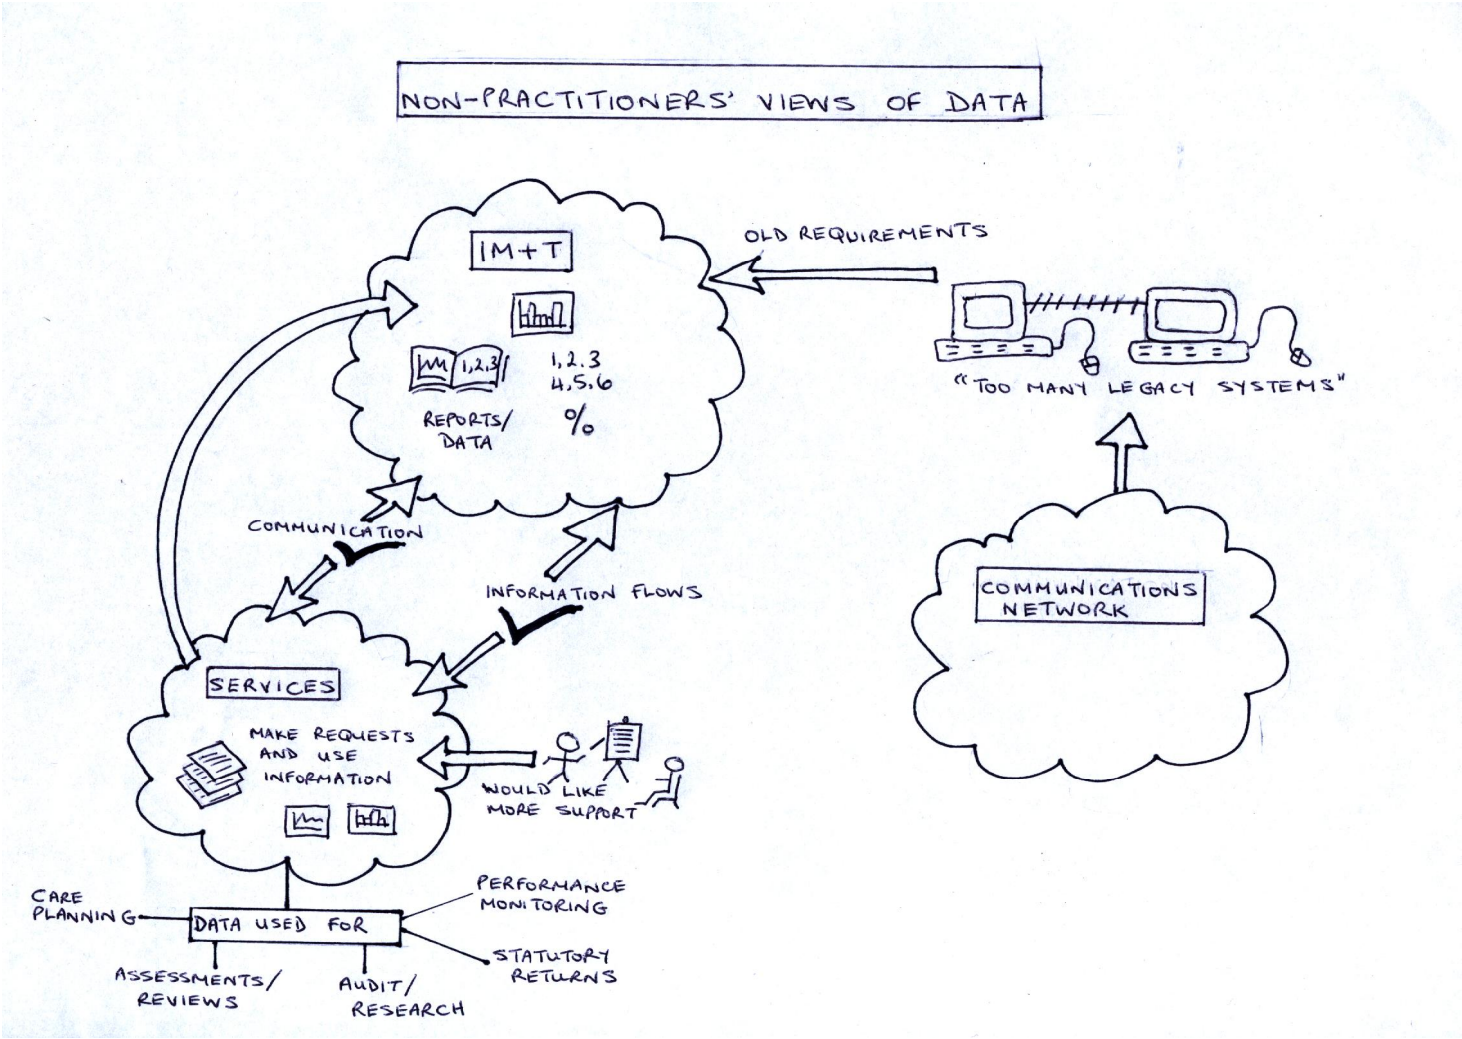 NON-PRACTITIONERS' VIEWS OF DATA
IM+T
1,2,3
1,2.3
4,5.6
%
REPORTS/
DATA
OLD REQUIREMENTS
"TOO MANY LEGACY SYSTEMS"
COMMUNICATION
INFORMATION FLOWS
COMMUNICATIONS
NETWORK
SERVICES
MAKE REQUESTS
AND USE
INFORMATION
WOULD LIKE
MORE SUPPORT
DATA USED FOR
CARE
PLANNING
ASSESSMENTS/
REVIEWS
AUDIT/
RESEARCH
PERFORMANCE
MONITORING
STATUTORY
RETURNS